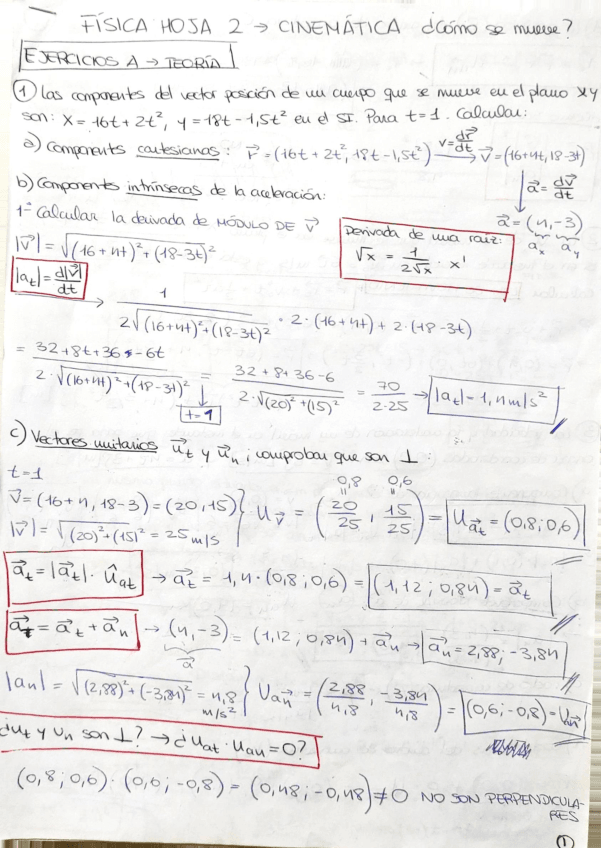 FÍSICA HOJA 2 → CINEMÁTICA ¿Cómo se mueve?
EJERCICIOS A → TEORÍA
① Las componentes del vector posición de un cuerpo que se mueve en el plano XY
son: X = 16t + 2t², y = 18t - 1,5t² en el SI. Para t = 1. Calcular:
a) Components cartesianas: r⃗ = (16t + 2t², 18t - 1,5t²) —v = dr⃗/dt→ v⃗ = (16+4t, 18-3t)
↓ a⃗ = dv⃗/dt
b) Componentes intrínsecas de la aceleración:
a⃗ = (4, -3)
aₓ a_y
1º Calcular la derivada de MÓDULO DE V⃗
Derivada de una raiz:
√x = 1/(2√x) · x'
|V⃗| = √((16+4t)² + (18-3t)²)
|at| = d|V⃗|/dt
→ 1/(2√((16+4t)² + (18-3t)²)) · 2·(16+4t) + 2·(18-3t)
= (32+8t+36-6t)/(2·√((16+4t)² + (18-3t)²)) = (32+8+36-6)/(2·√((20)² + (15)²)) = 70/(2·25) → |at| = 1,4 m/s²
↓ t=1
c) Vectores unitarios u⃗t y u⃗n; comprobar que son ⊥:
t = 1
V⃗ = (16+4, 18-3) = (20, 15)
|V⃗| = √((20)² + (15)²) = 25 m/s
0,8 0,6
U_V⃗ = (20/25, 15/25) = U_a⃗t = (0,8; 0,6)
a⃗t = |a⃗t| · û_at → a⃗t = 1,4 · (0,8; 0,6) = (1,12; 0,84) = a⃗t
a⃗ = a⃗t + a⃗n → (4, -3) = (1,12; 0,84) + a⃗n → a⃗n = 2,88; -3,84
a⃗
|an| = √((2,88)² + (-3,84)²) = 4,8 m/s² } U_a⃗n = (2,88/4,8, -3,84/4,8) = (0,6; -0,8) = U_a⃗n
¿ut y un son ⊥? → ¿u_at · u_an = 0?
(0,8; 0,6) · (0,6; -0,8) = (0,48; -0,48) ≠ 0 NO SON PERPENDICULA-
RES
①